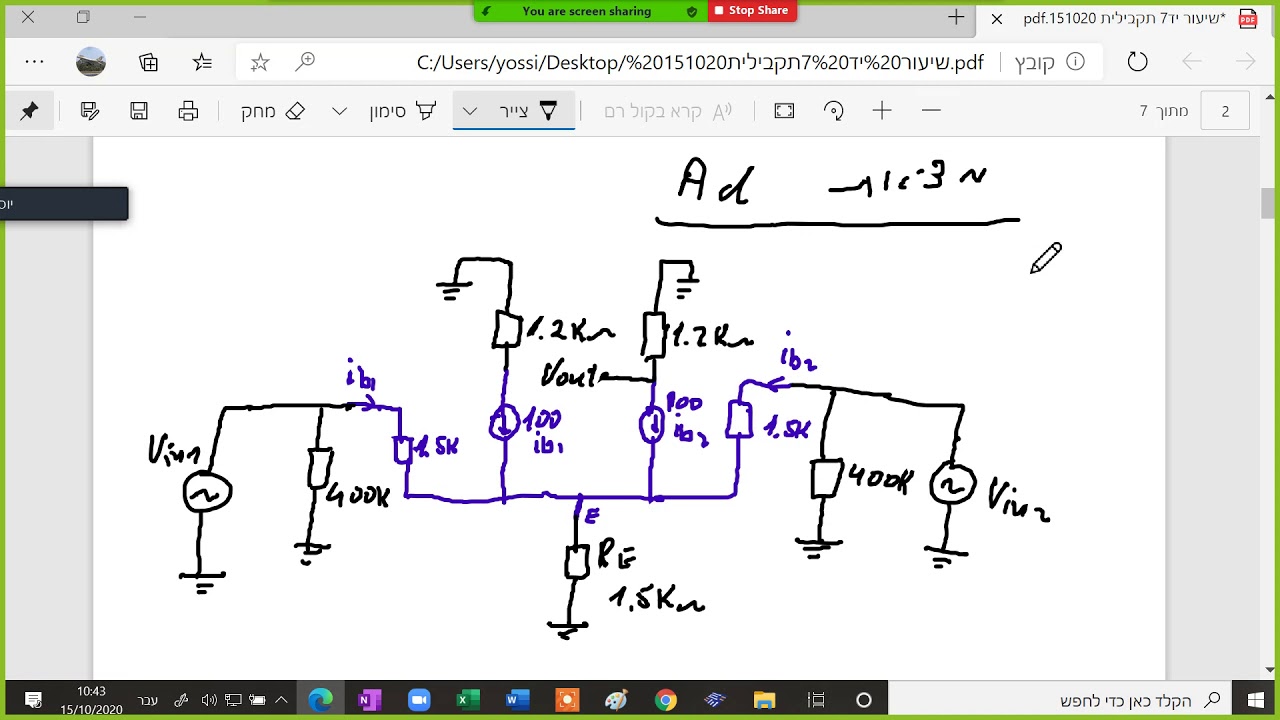 You are screen sharing
Stop Share
*שיעור יד7 תקבילית 151020.pdf
C:/Users/yossi/Desktop/%20151020שיעור%20יד%207תקבילית.pdf
קובץ
מחק
סימון
צייר
קרא בקול רם
מתוך 7
2
Ad
1.2K
1.2K
Vout
ib1
ib2
100
ib1
100
ib2
1.5K
1.5K
Vin1
400K
400K
Vin2
E
RE
1.5K
10:43
15/10/2020
עבר
הקלד כאן כדי לחפש